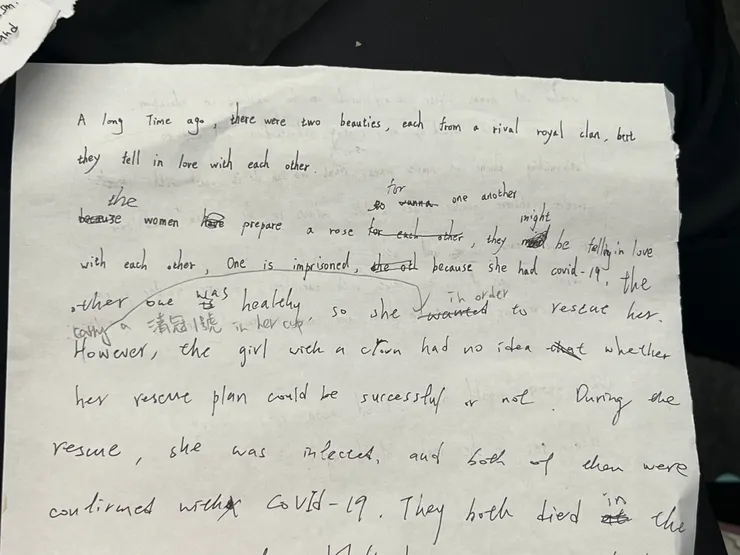 and
A long Time ago, there were two beauties, each from a rival royal clan, but
they fell in love with each other.
for
the so wanna one another
because women have prepare a rose for each other, they might be falling in love
with each other, One is imprisoned, the oth because she had covid-19, the
other one was healthy, so she wanted in order to rescue her.
carry a 清冠1號 in her cup
However, the girl with a crown had no idea that whether
her rescue plan could be successful or not. During the
rescue, she was infected, and both of them were
confirmed with COVID-19. They both died in the